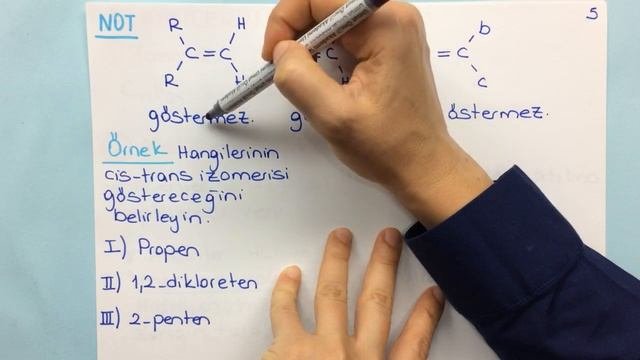 NOT
5
R H
C=C
R H
=C
b
= C
c
göstermez. g östermez.
Örnek Hangilerinin
cis-trans izomerisi
göstereceğini
belirleyin.
I) Propen
II) 1,2-dikloreten
III) 2-penten